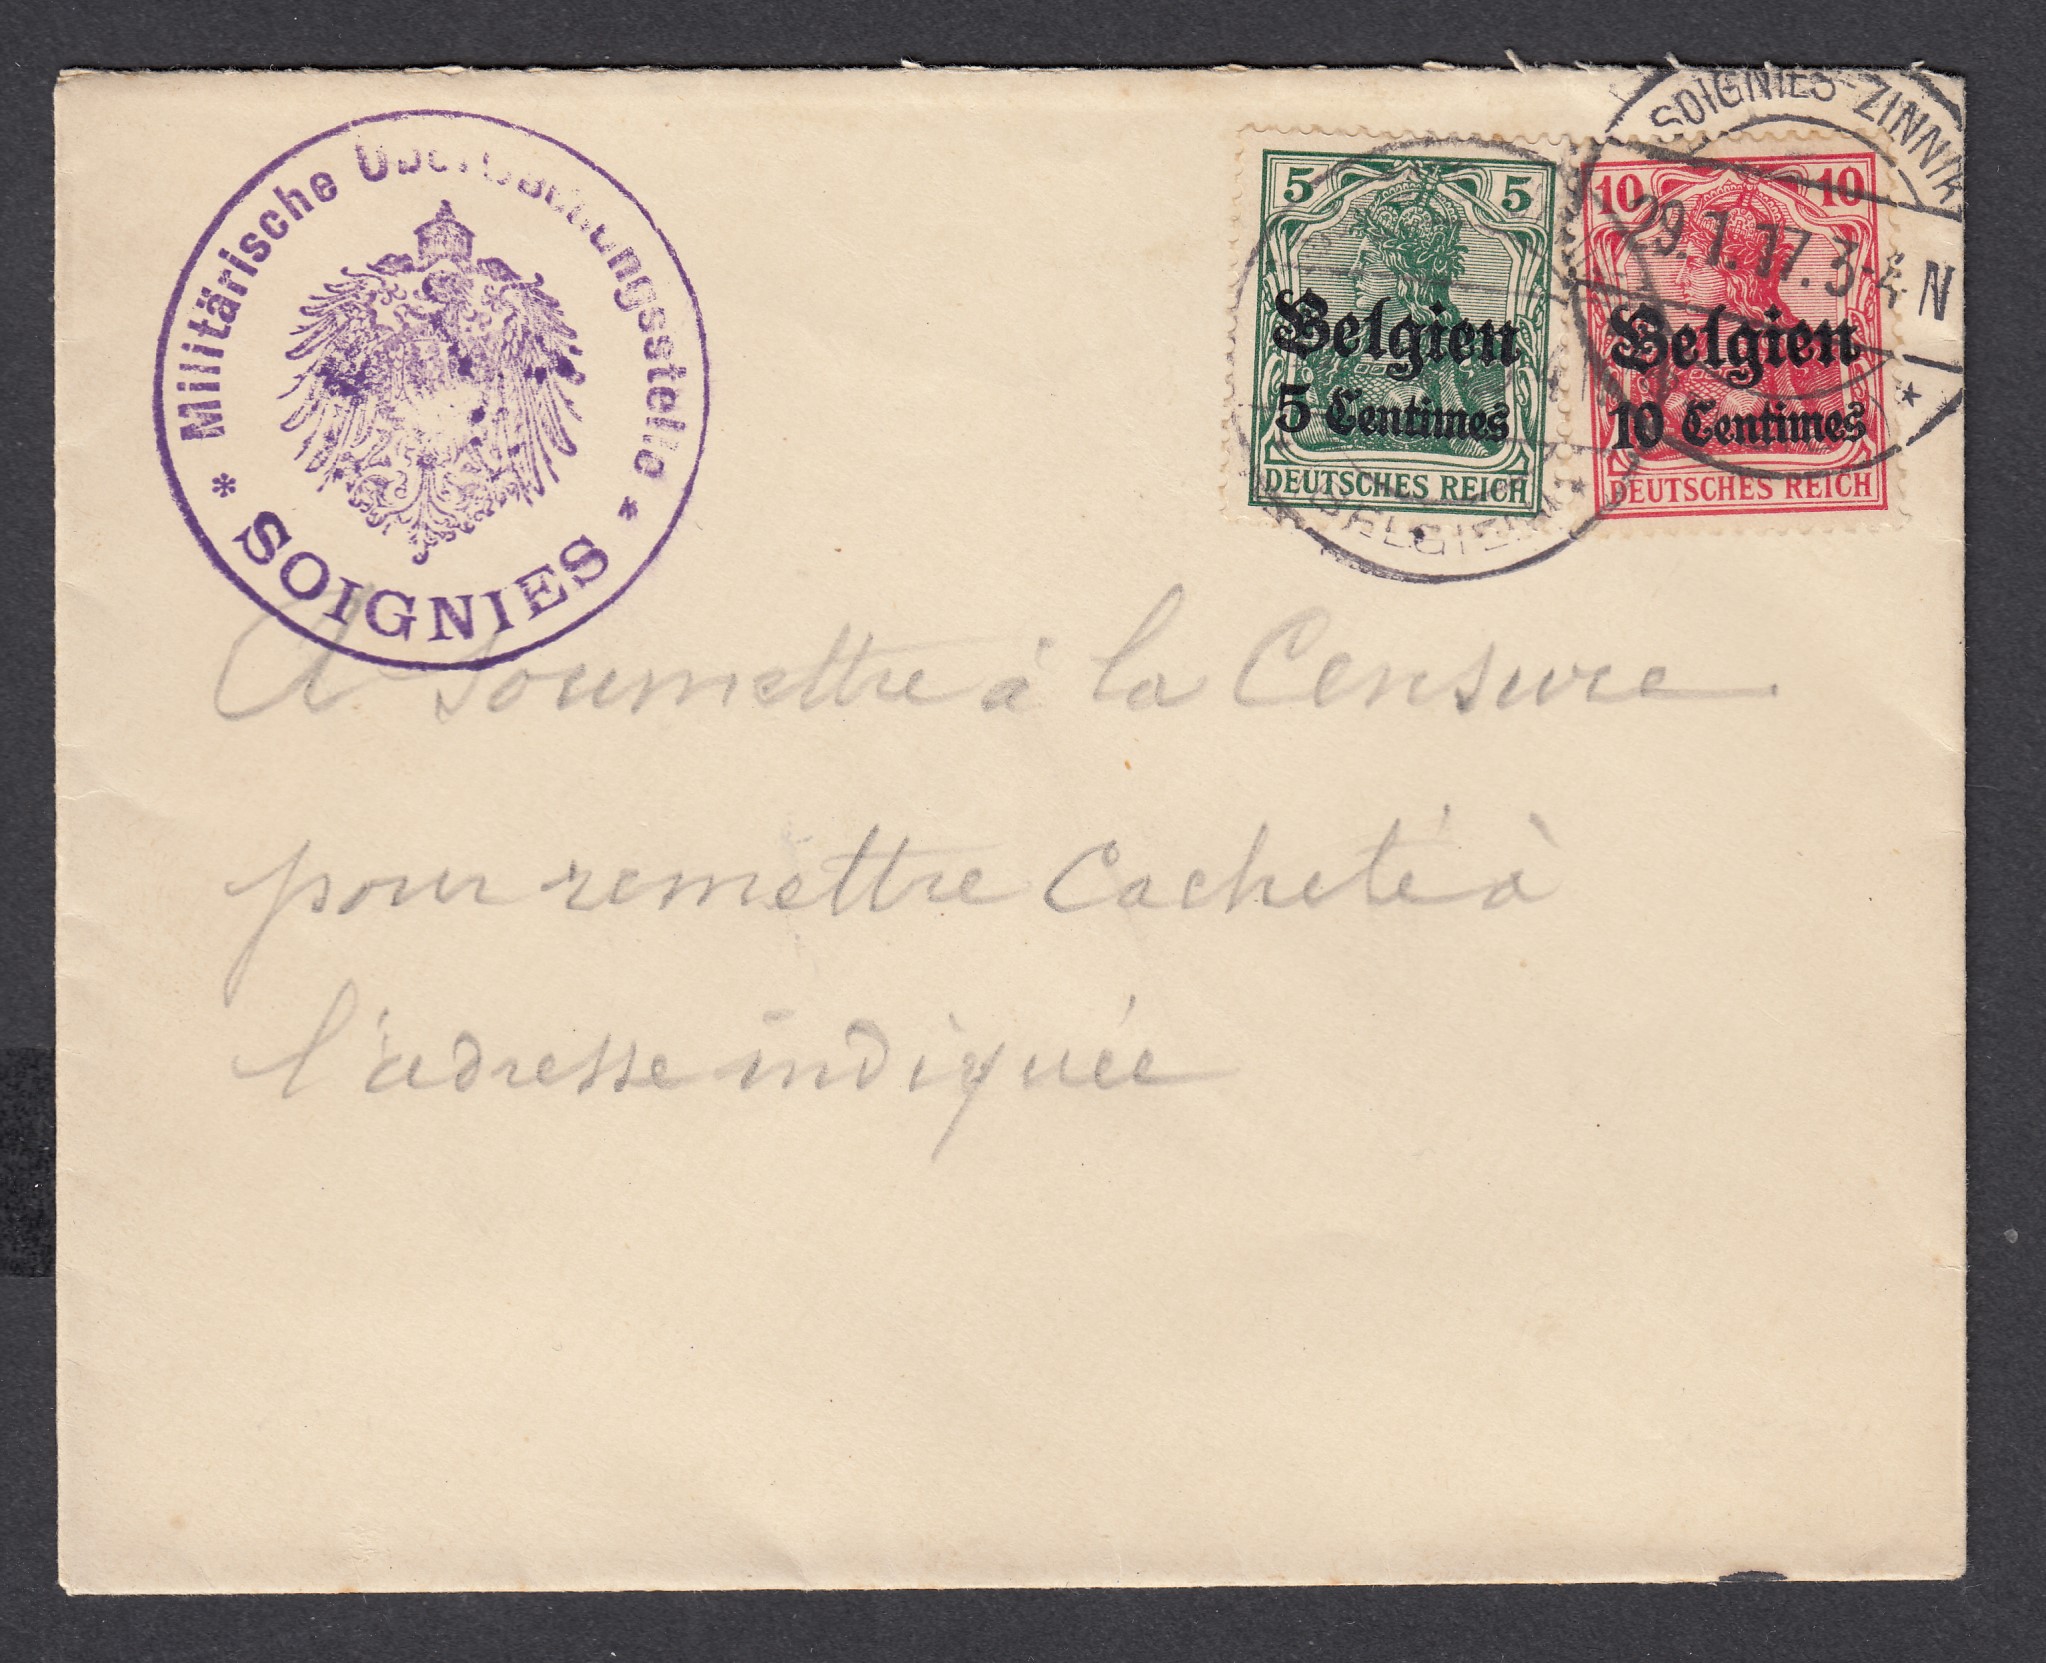 * Militärische Überwachungsstelle *
SOIGNIES
5 5
Belgien
5 Centimes
DEUTSCHES REICH
10 10
Belgien
10 Centimes
DEUTSCHES REICH
SOIGNIES-ZINNIK
29.1.17. 3-4 N
BELGIEN
A soumettre à la Censure
pour remettre cacheté à
l'adresse indiquée